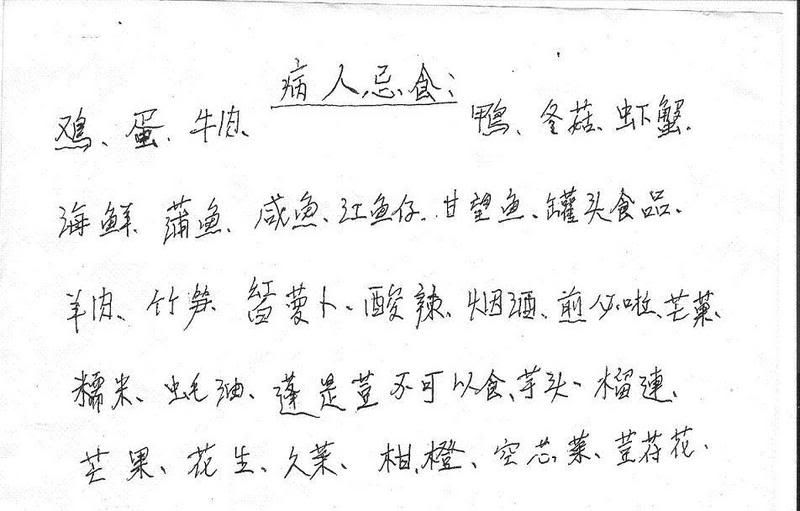 病人忌食:
鸡、蛋、牛肉、 鸭、冬菇、虾蟹、
海鲜、蒲鱼、咸鱼、江鱼仔、甘望鱼、罐头食品、
羊肉、竹笋、萝卜、酸辣、烟酒、煎 芒菓、
糯米、蚝油、蓬是荳不可以食、芋头、榴連、
芒果、花生、久菜、柑、橙、空芯菜、荳荷花、